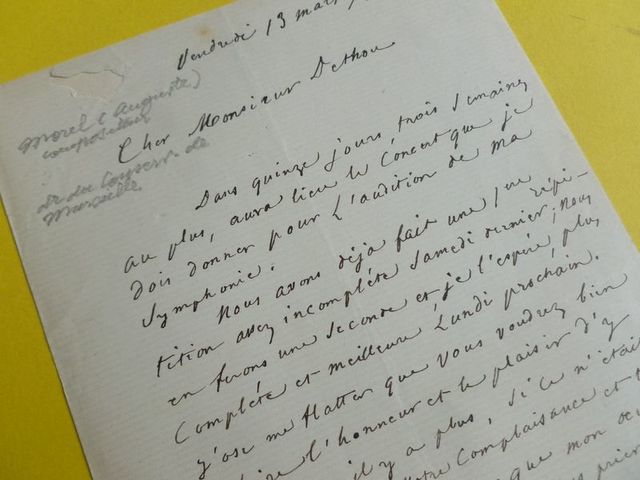 Vendredi 13 mars
Morel (Auguste)
compositeur
dr du Conserv. de
Marseille
Cher Monsieur Dethou
Dans quinze jours, trois Semaines
au plus, aura lieu le Concert que je
dois donner pour l'audition de ma
Symphonie.
Nous avons déja fait une 1re répé-
tition assez incomplète Samedi dernier; nous
en ferons une seconde et je l'espère, plus
Complète et meilleure Lundi prochain.
J'ose me flatter que vous voudrez bien
l'honneur et le plaisir d'y
il y a plus, si ce n'était
Complaisance et
que mon